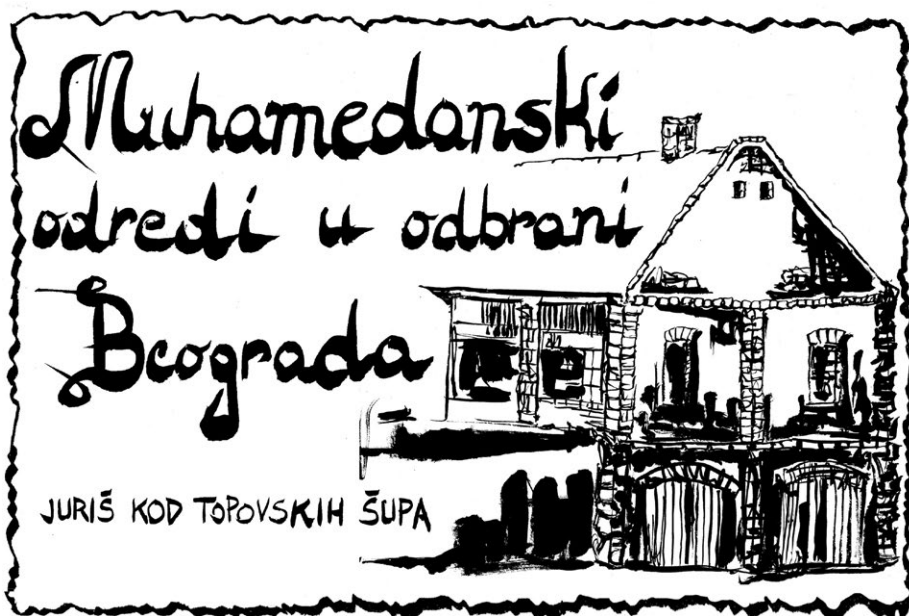 Muhamedanski
odredi u odbrani
Beograda
JURIŠ KOD TOPOVSKIH ŠUPA